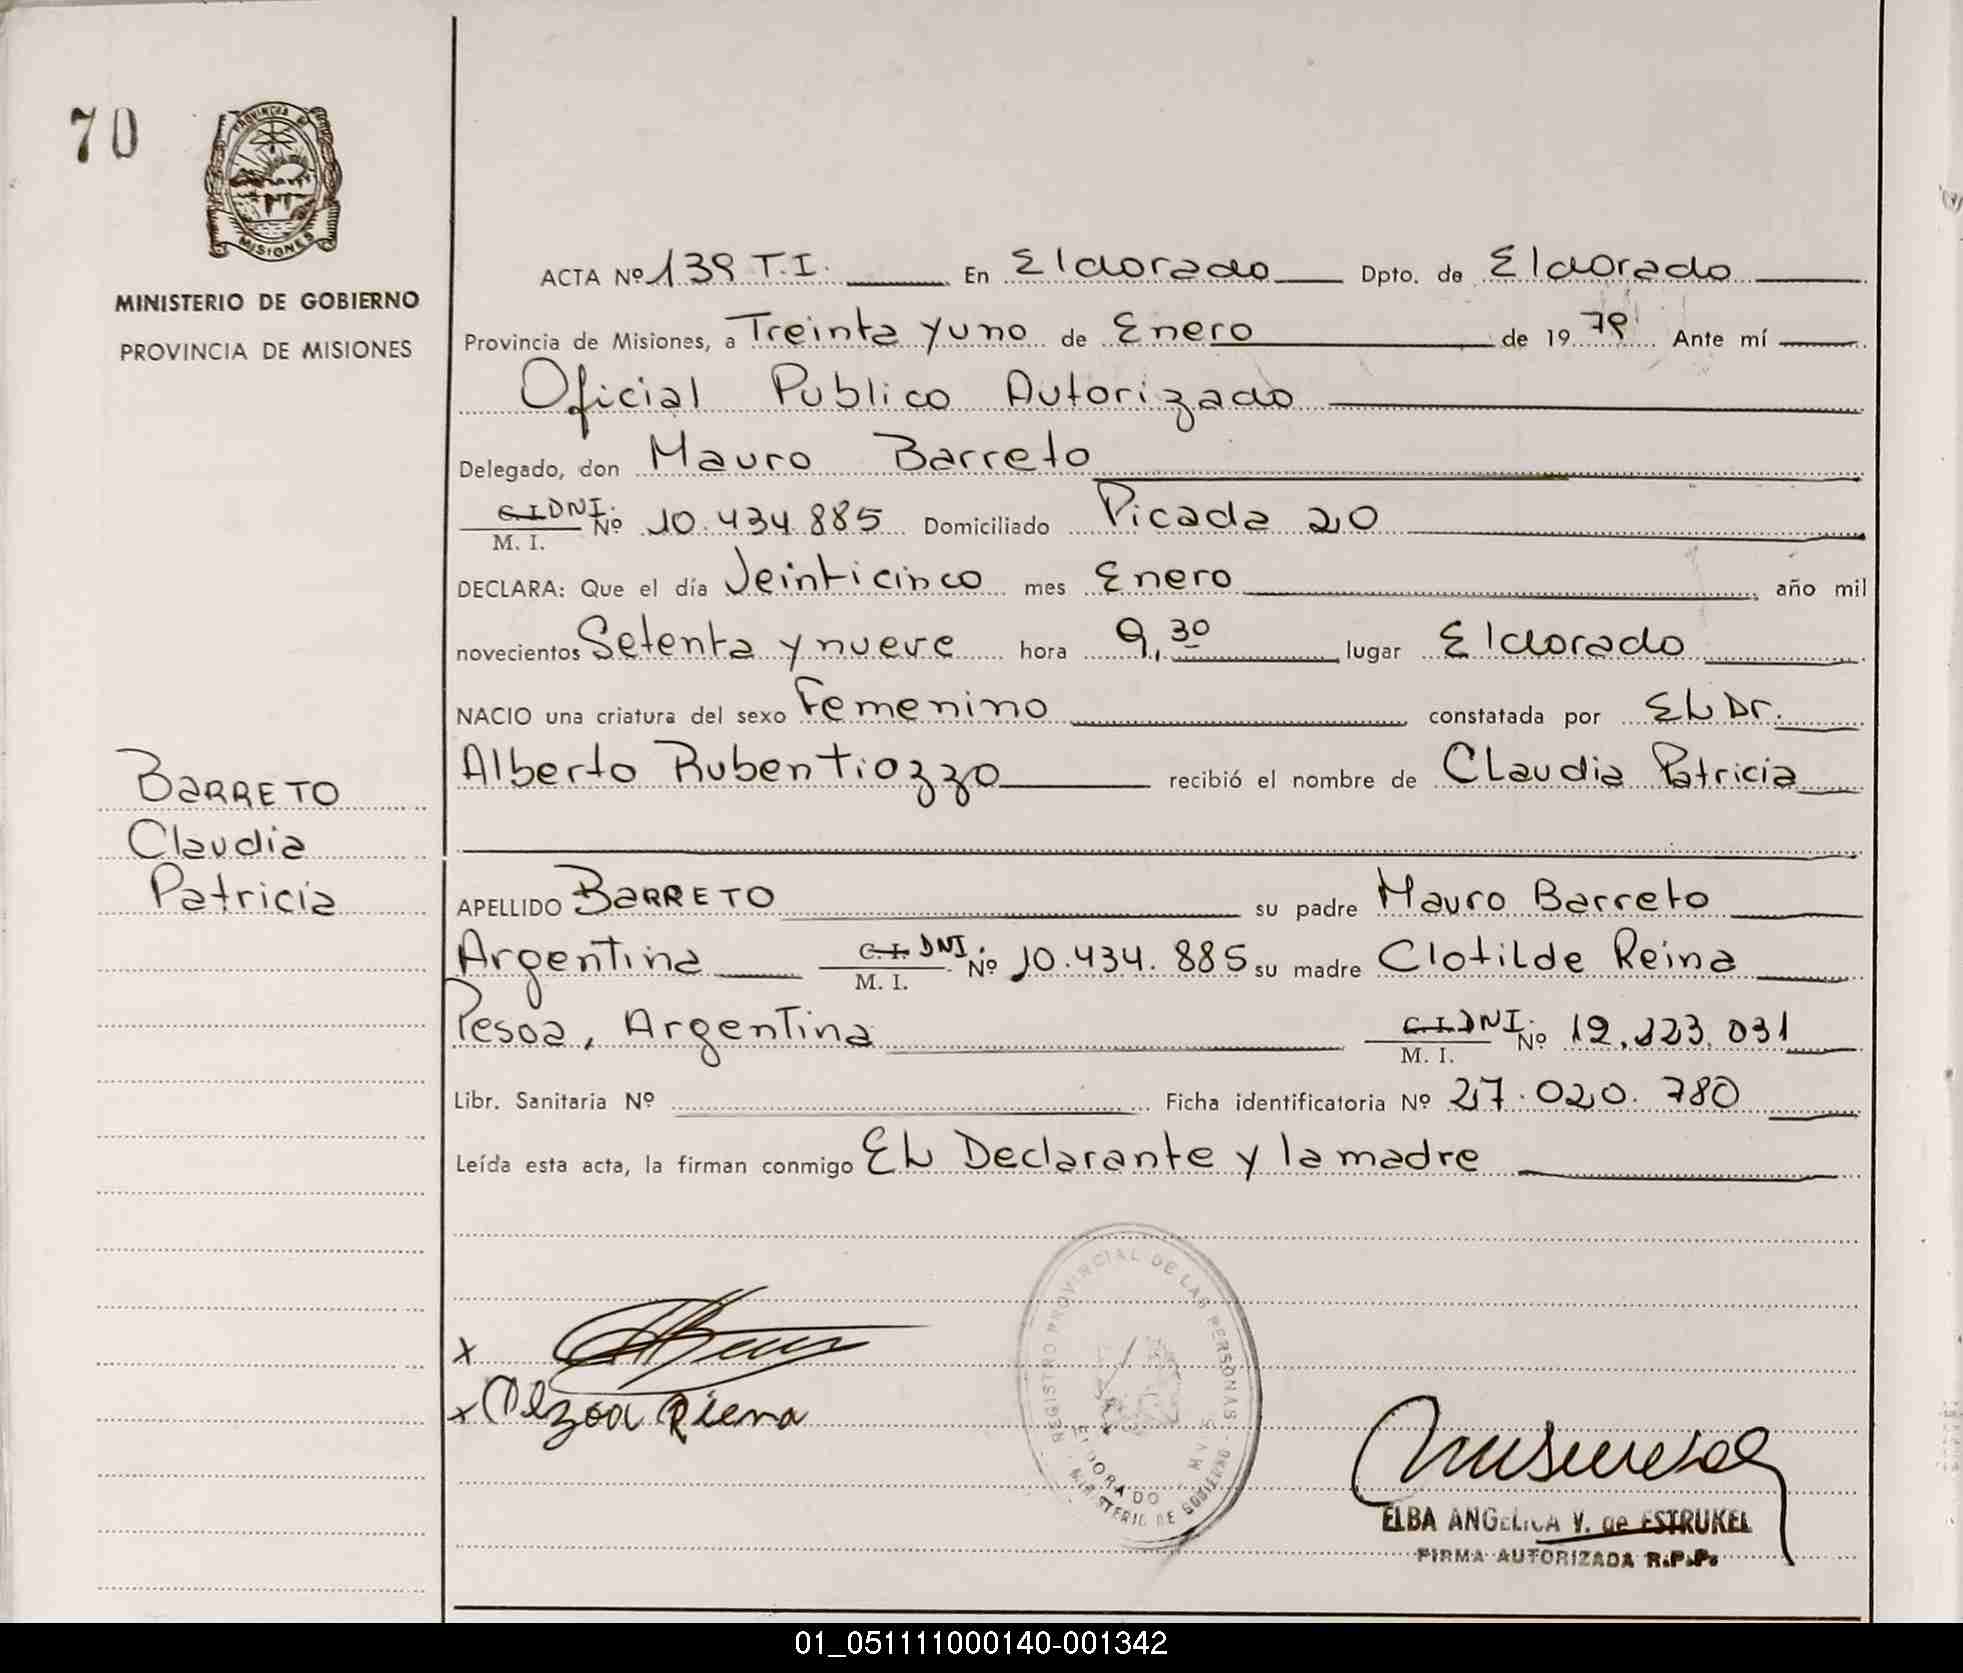 70
PROVINCIA DE
MISIONES
MINISTERIO DE GOBIERNO
PROVINCIA DE MISIONES
ACTA Nº 139 T.I. En Eldorado Dpto. de Eldorado
Provincia de Misiones, a Treinta y uno de Enero de 1979 Ante mí
Oficial Publico Autorizado
Delegado, don Mauro Barreto
C.I. DNI. Nº 10.434.885 Domiciliado Picada 20
M. I.
DECLARA: Que el día Veinticinco mes Enero año mil
novecientos Setenta y nueve hora 9,30 lugar Eldorado
NACIO una criatura del sexo Femenino constatada por EL Dr.
Alberto Ruben Tiozzo recibió el nombre de Claudia Patricia
BARRETO
Claudia
Patricia
APELLIDO BARRETO su padre Mauro Barreto
Argentina C.I. DNI. Nº 10.434.885 su madre Clotilde Reina
M. I.
Pesoa, Argentina C.I. DNI. Nº 12.123.031
M. I.
Libr. Sanitaria Nº Ficha identificatoria Nº 27.020.780
Leída esta acta, la firman conmigo EL Declarante y la madre
REGISTRO PROVINCIAL DE LAS PERSONAS
ELDORADO
MINISTERIO DE GOBIERNO
x
x
ELBA ANGELICA V. de ESTRUKEL
FIRMA AUTORIZADA R.P.P.
01_051111000140-001342